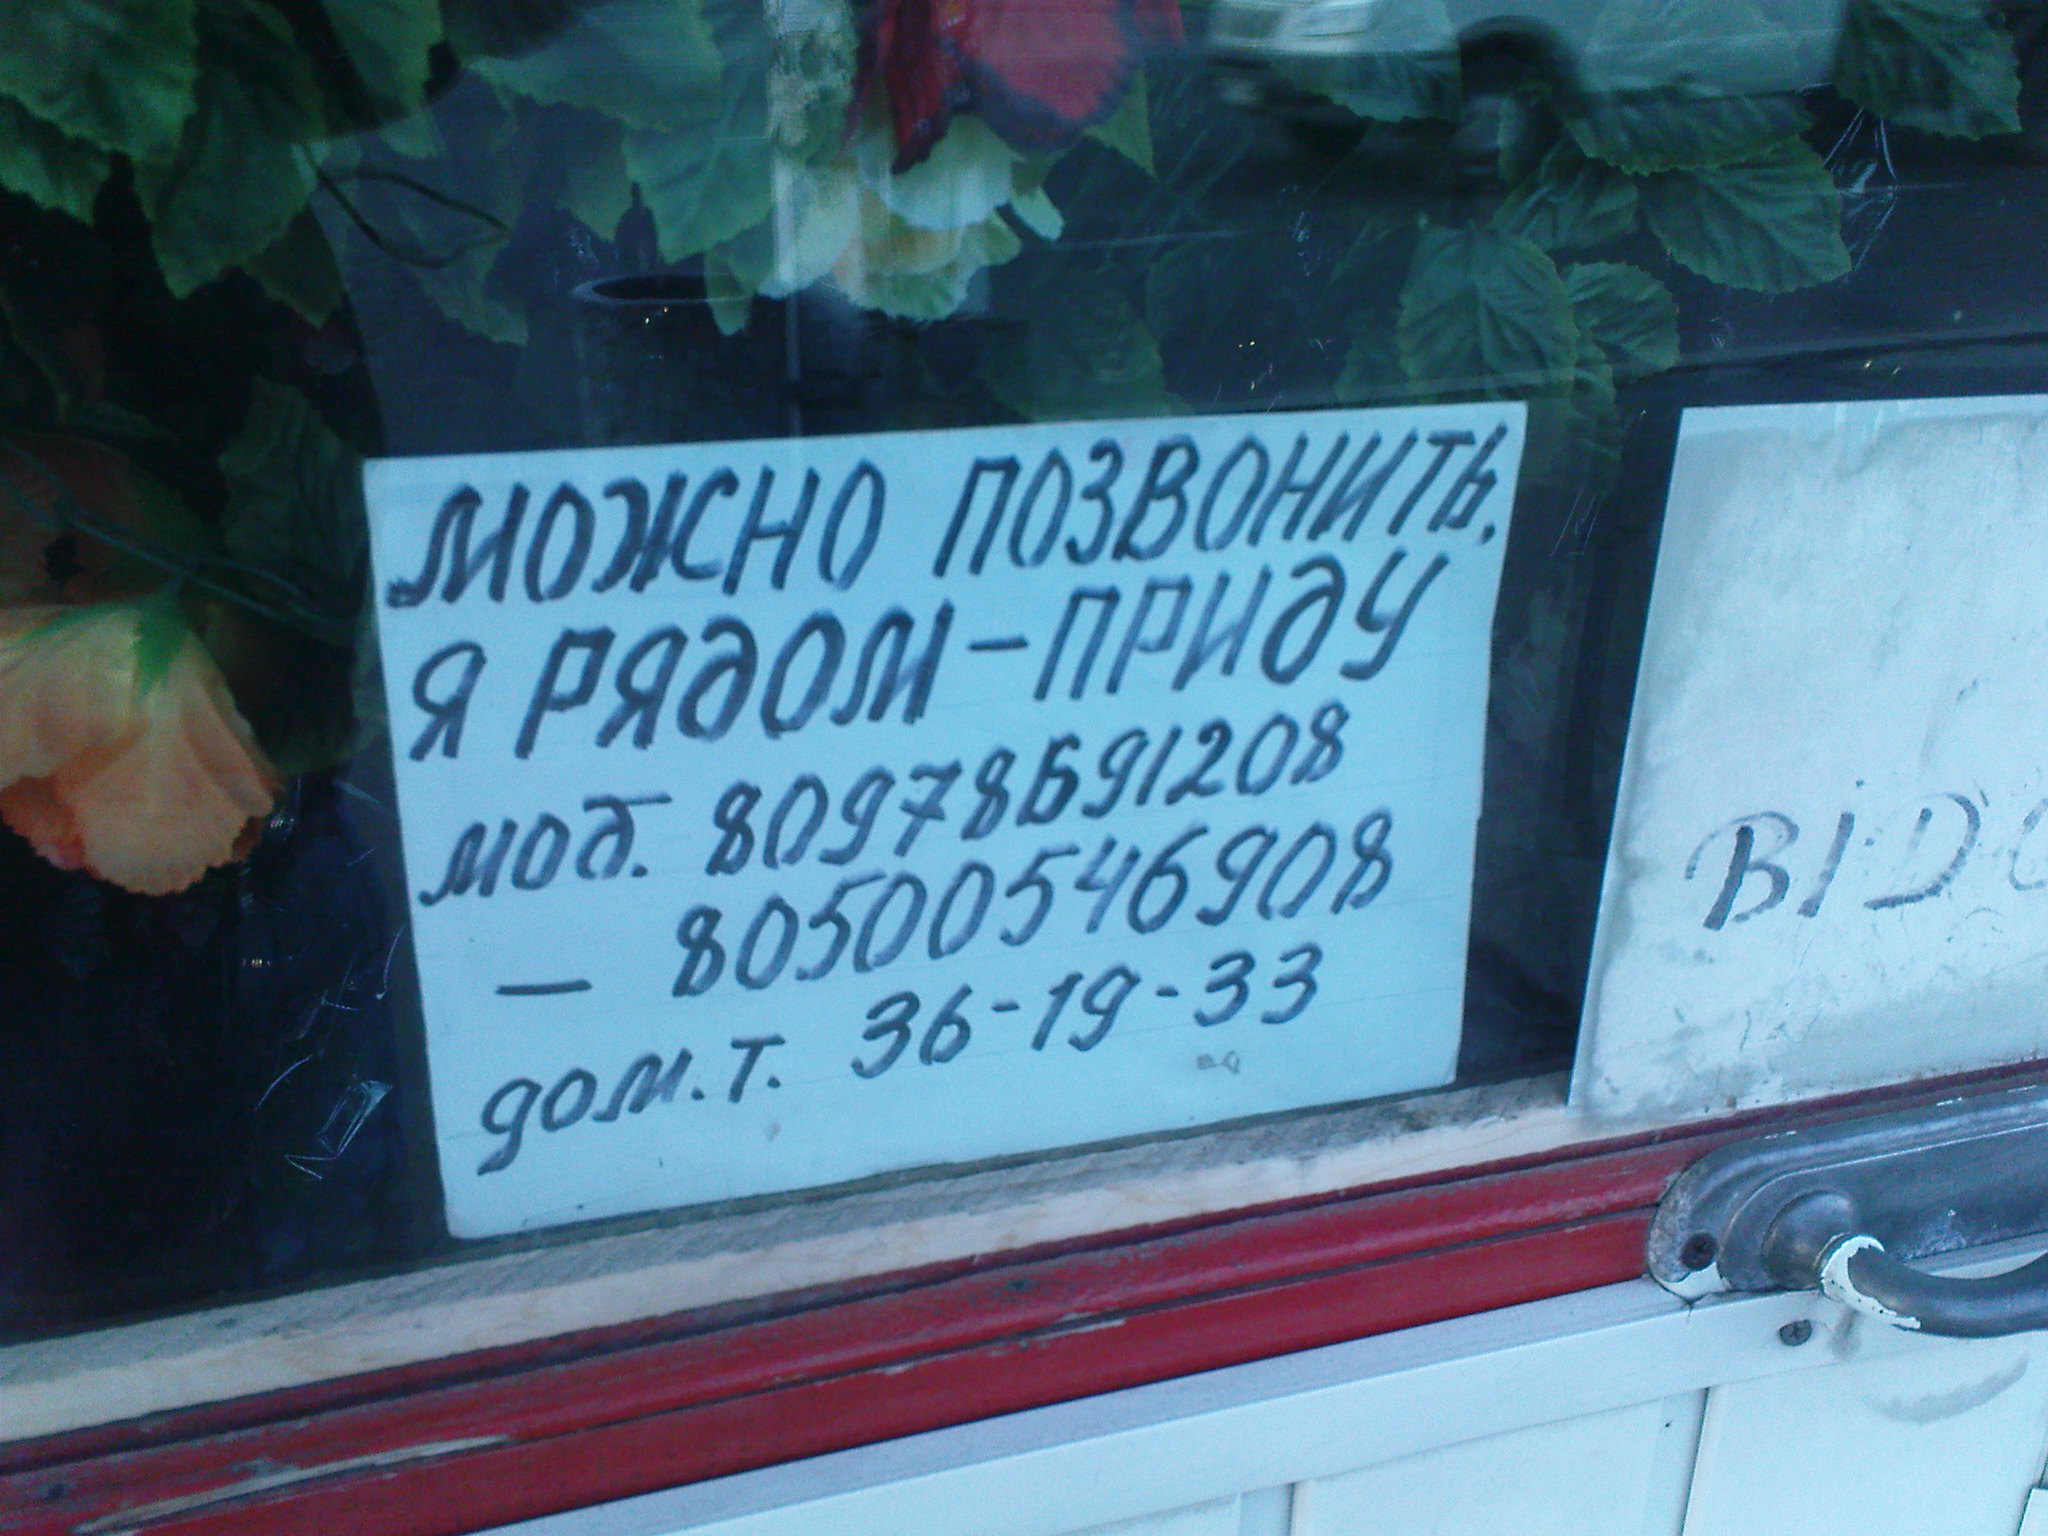 МОЖНО ПОЗВОНИТЬ.
Я РЯДОМ - ПРИДУ
моб. 80978691208
— 80500546908
дом. т. 36-19-33